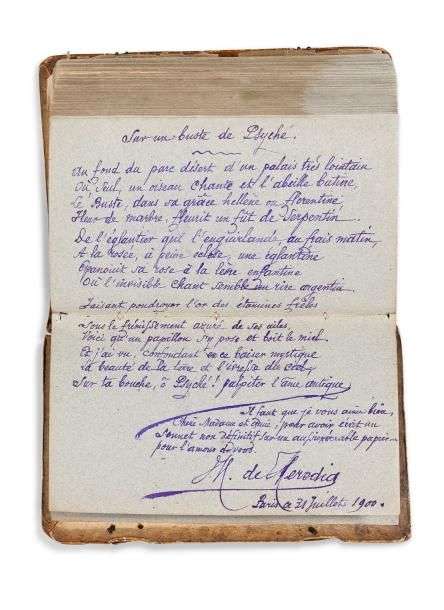 Sur un buste de Psyché.
Au fond du parc désert d'un palais très lointain
Où, seul, un oiseau chante et l'abeille butine,
Le Buste, dans sa grâce hellène ou florentine,
Fleur de marbre, fleurit un fût de Serpentin.
De l'églantier qui l'enguirlande, au frais matin,
A la rosée, à peine éclose, une églantine
Epanouit sa rose à la lèvre enfantine
Où l'invisible chant semble un rire argentin.
Faisant poudroyer l'or des étamines frêles
Sous le frémissement azuré de ses ailes,
Voici qu'un papillon s'y pose et boit le miel
Et j'ai vu, confondant en ce baiser mystique
La beauté de la terre et l'ivresse du ciel,
Sur ta bouche, ô Psyché! palpiter l'âme antique.
Il faut que je vous aime bien,
Chère Madame et amie, pour avoir écrit un
Sonnet non définitif sur un aussi papier
pour l'amour de vous.
de Heredia
Paris ce 21 Juillet 1900.